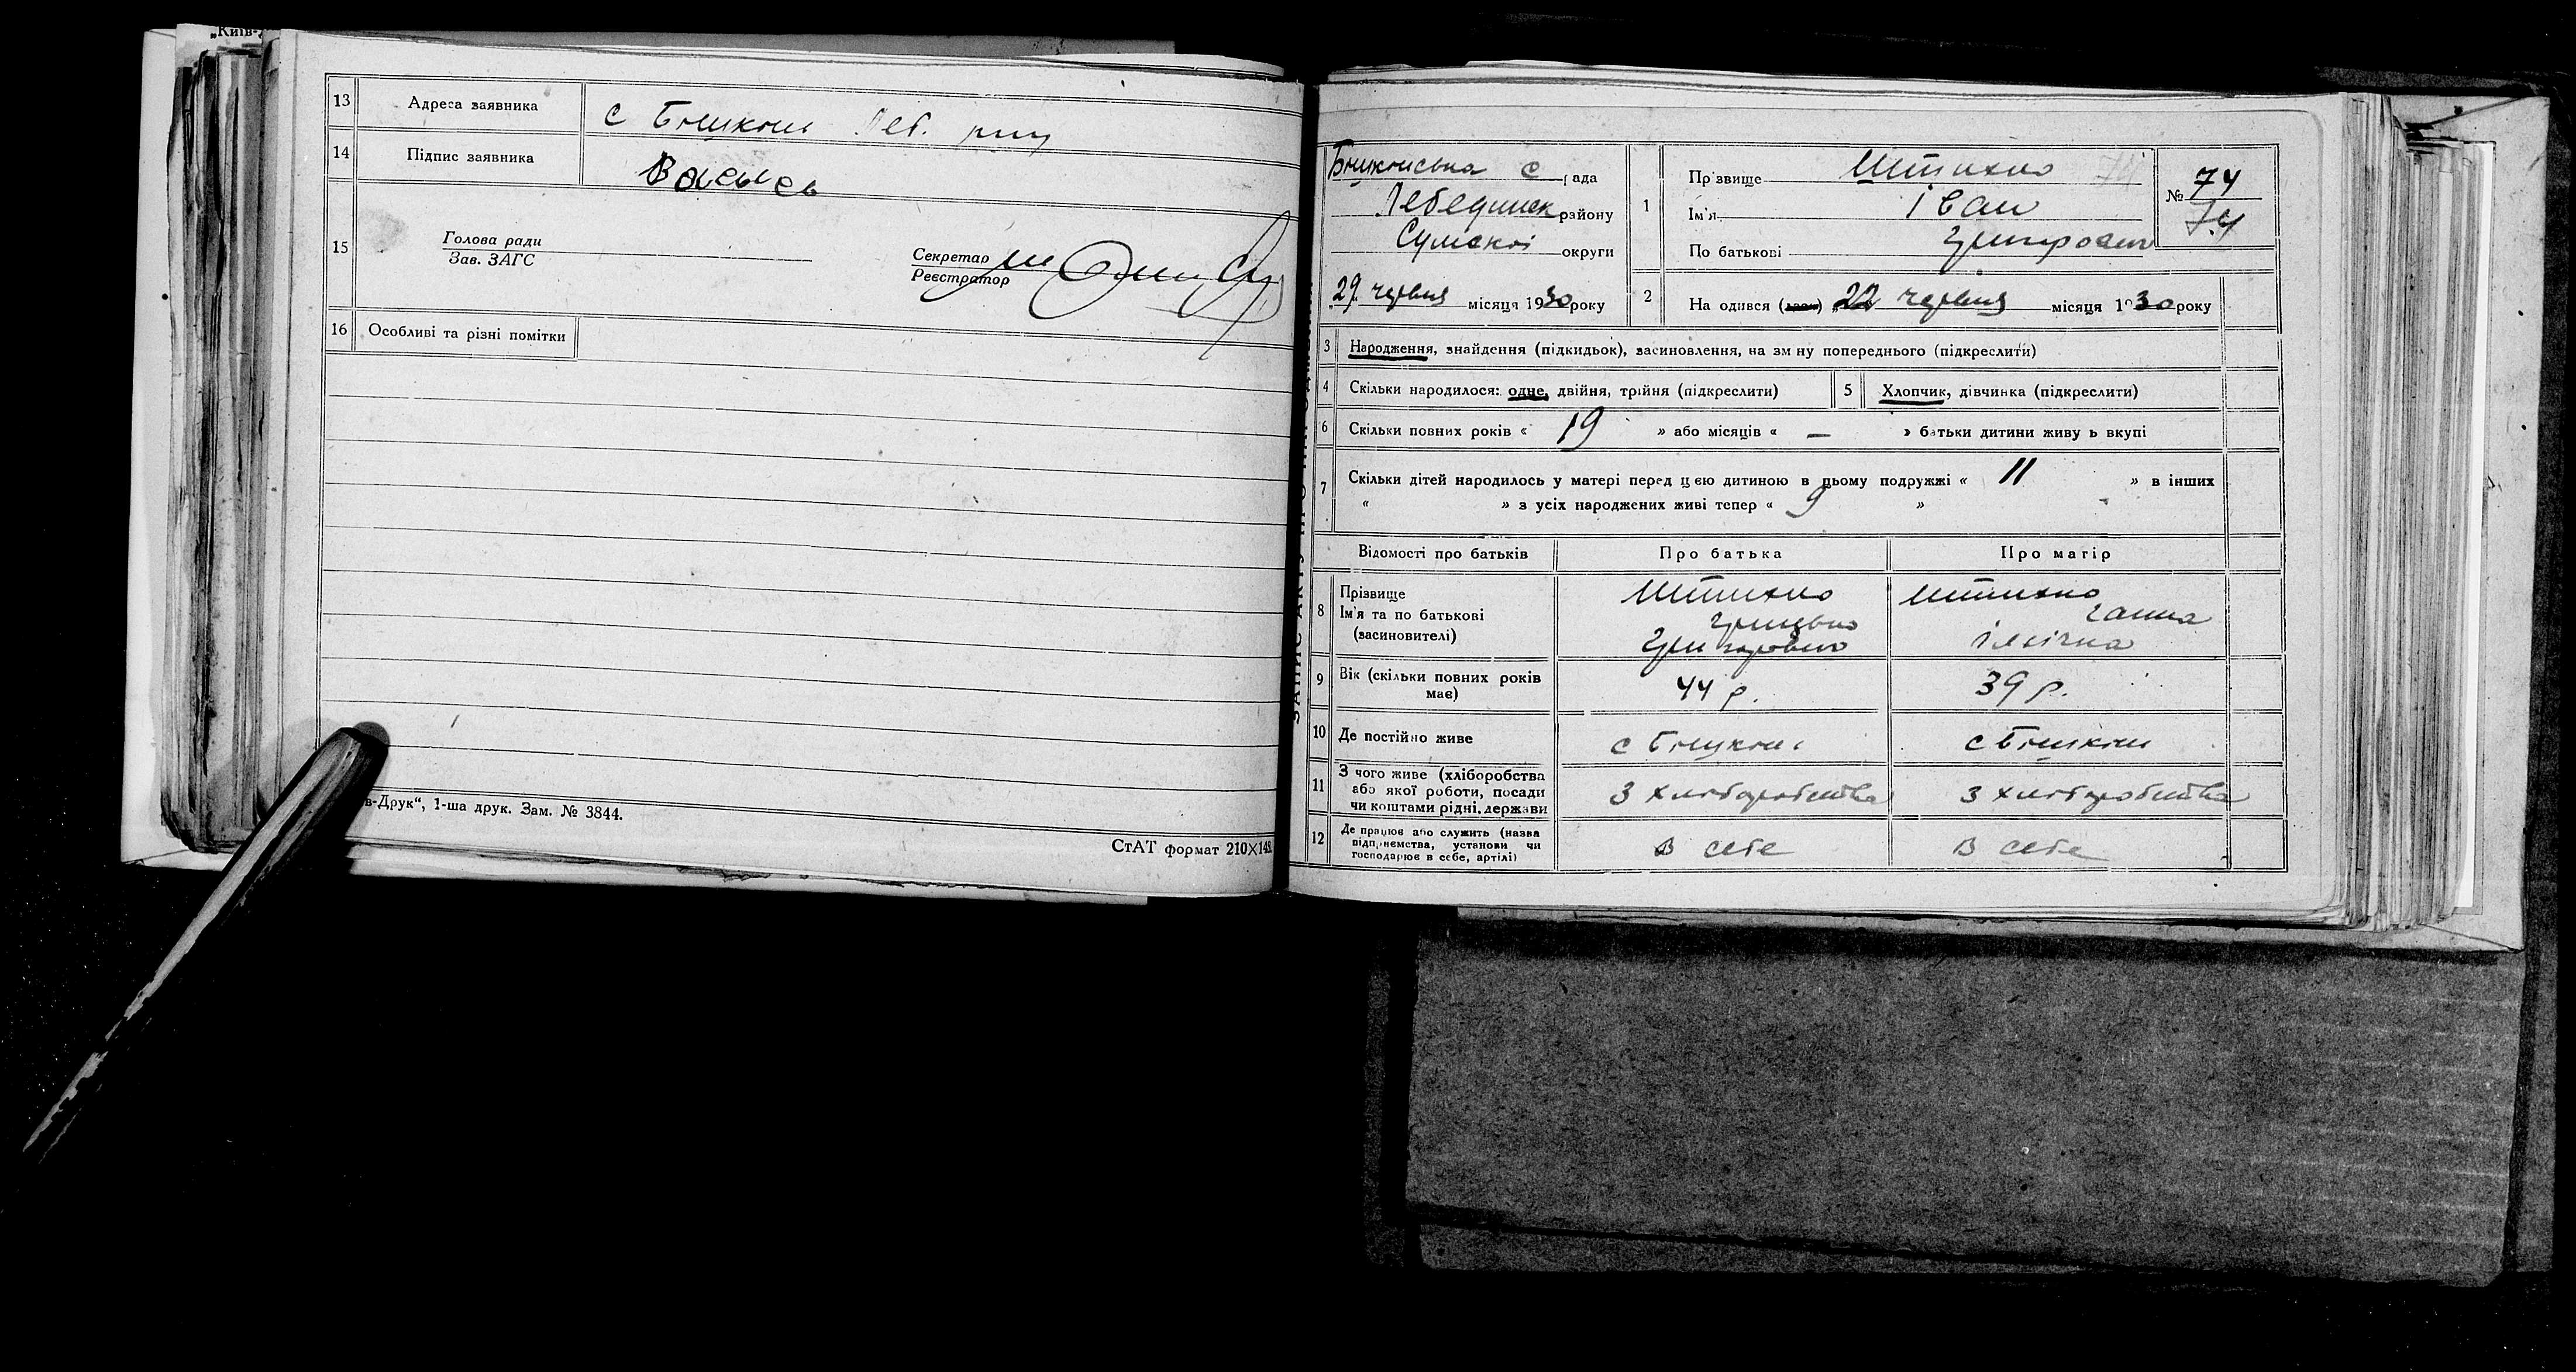 „Київ-
13 Адреса заявника с Бишкінь Леб. р-ну
14 Підпис заявника
15 Голова ради
Зав. ЗАГС
Секретар
Реєстратор
16 Особливі та різні помітки
в-Друк“, 1-ша друк. Зам. № 3844.
СтАТ формат 210×148.
Бишкінська с рада
Лебединськ району
Сумської округи
29 червня місяця 1930 року
1 Прізвище Штихно 74
Ім'я Іван
По батькові Григорович
№ 74
74
2 На одився (лась) 22 червня місяця 1930 року
3 Народження, знайдення (підкидьок), засиновлення, на зм ну попереднього (підкреслити)
4 Скільки народилося: одне, двійня, трійня (підкреслити) 5 Хлопчик, дівчинка (підкреслити)
6 Скільки повних років « 19 » або місяців « — » батьки дитини живу ь вкупі
7 Скільки дітей народилось у матері перед цєю дитиною в цьому подружжі « 11 » в інших
« » з усіх народжених живі тепер « 9 »
Відомості про батьків Про батька Про матір
8 Прізвище
Ім'я та по батькові
(засиновителі)
Штихно
Грицько
Григорович
Штихно
Ганна
Іллівна
9 Вік (скільки повних років має) 44 р. 39 р.
10 Де постійно живе с Бишкінь с Бишкінь
11 З чого живе (хліборобства
або якої роботи, посади
чи коштами рідні, держави
З хліборобства З хліборобства
12 Де працює або служить (назва
підприємства, установи чи
господарює в себе, артілі)
В себе В себе